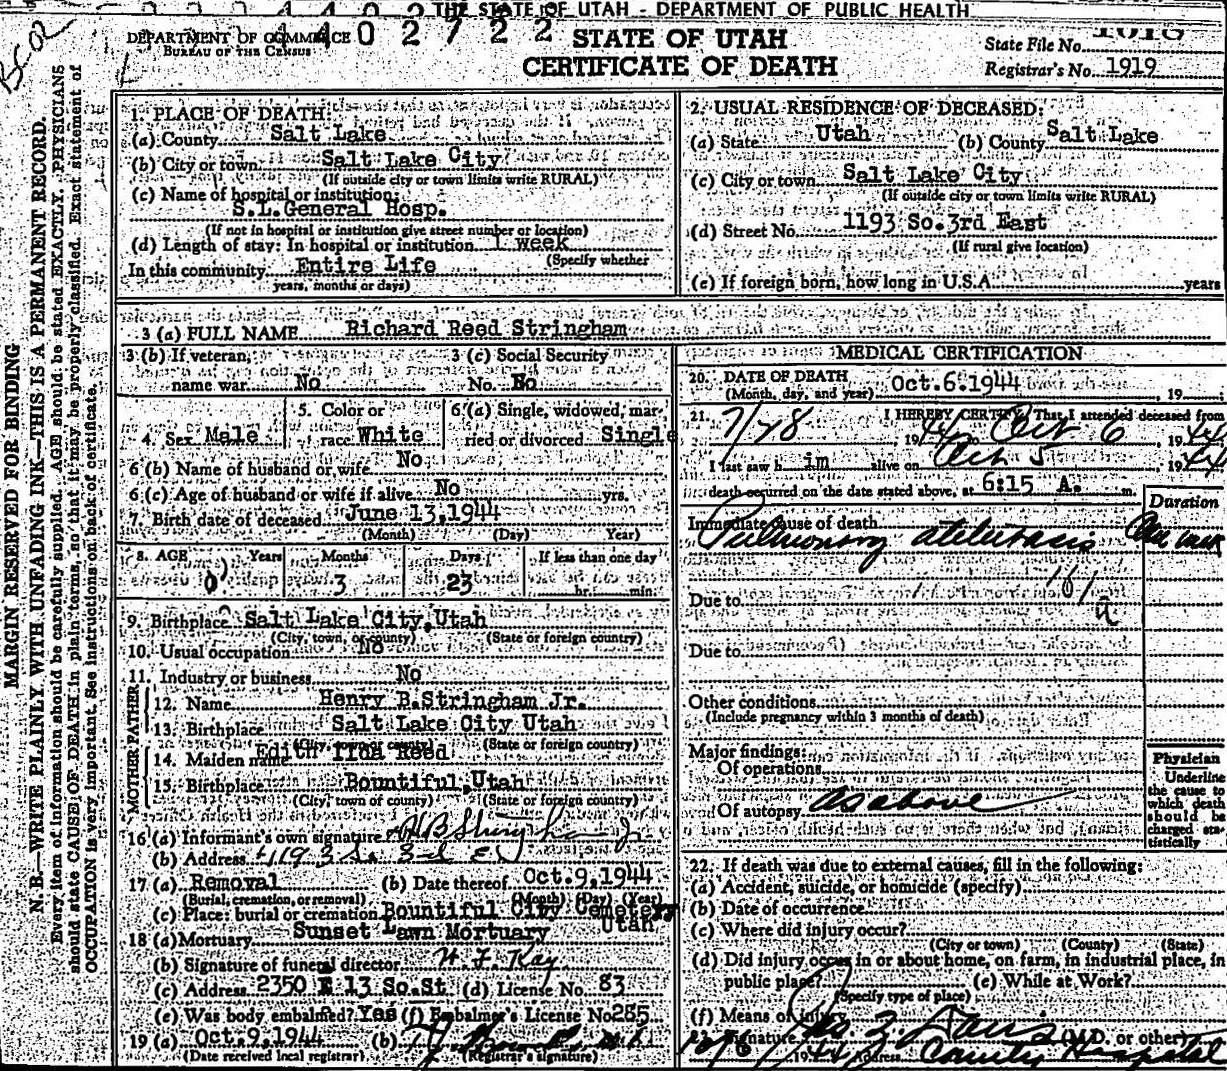 THE STATE OF UTAH - DEPARTMENT OF PUBLIC HEALTH
DEPARTMENT OF COMMERCE
BUREAU OF THE CENSUS
4 0 2 7 2 2
STATE OF UTAH
CERTIFICATE OF DEATH
State File No. 1018
Registrar's No. 1919
MARGIN RESERVED FOR BINDING
N. B.—WRITE PLAINLY, WITH UNFADING INK—THIS IS A PERMANENT RECORD.
Every item of information should be carefully supplied. AGE should be stated EXACTLY. PHYSICIANS
should state CAUSE OF DEATH in plain terms, so that it may be properly classified. Exact statement of
OCCUPATION is very important. See instructions on back of certificate.
1. PLACE OF DEATH:
(a) County Salt Lake
(b) City or town Salt Lake City
(If outside city or town limits write RURAL)
(c) Name of hospital or institution:
S.L.General Hosp.
(If not in hospital or institution give street number or location)
(d) Length of stay: In hospital or institution 1 week
(Specify whether
In this community Entire Life
years, months or days)
2. USUAL RESIDENCE OF DECEASED:
(a) State Utah (b) County Salt Lake
(c) City or town Salt Lake City
(If outside city or town limits write RURAL)
(d) Street No. 1193 So.3rd East
(If rural give location)
(e) If foreign born, how long in U.S.A. years
3 (a) FULL NAME Richard Reed Stringham
3 (b) If veteran, name war No
3 (c) Social Security No. No
4. Sex Male
5. Color or race White
6. (a) Single, widowed, married or divorced Single
6 (b) Name of husband or wife No
6 (c) Age of husband or wife if alive No yrs.
7. Birth date of deceased June 13,1944
(Month) (Day) Year)
8. AGE Years Months Days If less than one day
0 3 23 hr. min.
9. Birthplace Salt Lake City,Utah
(City, town, or county) (State or foreign country)
10. Usual occupation No
11. Industry or business No
FATHER
12. Name Henry B.Stringham Jr.
13. Birthplace Salt Lake City Utah
(City, town or county) (State or foreign country)
MOTHER
14. Maiden name Edith Reed
15. Birthplace Bountiful,Utah
(City, town or county) (State or foreign country)
16 (a) Informant's own signature H B Stringham Jr.
(b) Address
17 (a) Removal (b) Date thereof Oct.9,1944
(Burial, cremation, or removal) (Month) (Day) (Year)
(c) Place: burial or cremation Bountiful City Cemetery
Utah
18 (a) Mortuary Sunset Lawn Mortuary
(b) Signature of funeral director
(c) Address 2350 E 13 So.St (d) License No. 83
(e) Was body embalmed? Yes (f) Embalmer's License No 285
19 (a) Oct.9,1944 (b)
(Date received local registrar) (Registrar's signature)
MEDICAL CERTIFICATION
20. DATE OF DEATH Oct.6.1944
(Month, day, and year) , 19 ;
21. I HEREBY CERTIFY, That I attended deceased from
, 1944 to Oct 6 , 1944
I last saw h im alive on Oct 5 , 1944
death occurred on the date stated above, at 6:15 A. m.
Duration
Immediate cause of death
Pulmonary atelectasis One week
Due to
161
a
Due to
Other conditions
(Include pregnancy within 3 months of death)
Major findings:
Of operations
Of autopsy as above
Physician
Underline
the cause to
which death
should be
charged sta-
tistically
22. If death was due to external causes, fill in the following:
(a) Accident, suicide, or homicide (specify)
(b) Date of occurrence
(c) Where did injury occur?
(City or town) (County) (State)
(d) Did injury occur in or about home, on farm, in industrial place, in
public place? (e) While at Work?
(Specify type of place)
(f) Means of injury
Signature Davis (M.D. or other)
1944 Address County Hospital